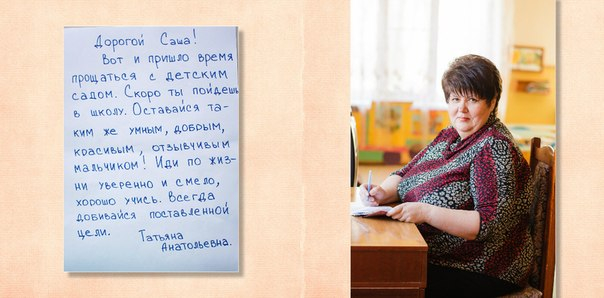 Дорогой Саша!
Вот и пришло время
прощаться с детским
садом. Скоро ты пойдешь
в школу. Оставайся та-
ким же умным, добрым,
красивым, отзывчивым
мальчиком! Иди по жиз-
ни уверенно и смело,
хорошо учись. Всегда
добивайся поставленной
цели.
Татьяна
Анатольевна.